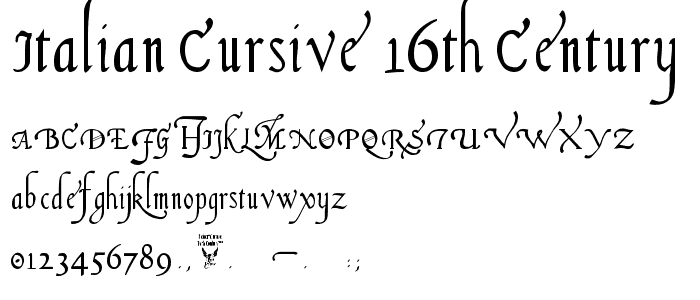 Italian Cursive 16th Century
ABCDEFGHIJKLMNOPQRSTUVWXYZ
abcdefghijklmnopqrstuvwxyz
0123456789., . - . :;